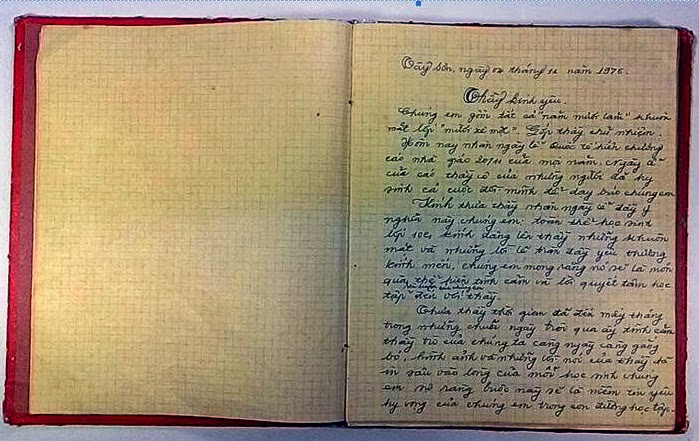 Tây Sơn, ngày 04 tháng 11 năm 1976.
Thầy kính yêu.
Chúng em gồm tất cả "năm mươi lăm" khuôn
mặt lớp "mười xê một". Gởi thầy chủ nhiệm.
Hôm nay nhân ngày lễ Quốc tế hiến chương
các nhà giáo 20/11 của mọi năm. Ngày lễ
của các thầy cô của những người đã hy
sinh cả cuộc đời mình để dạy bảo chúng em
Kính thưa thầy nhân ngày lễ đầy ý
nghĩa này chúng em toàn thể học sinh
lớp 10c1 kính dâng lên thầy những khuôn
mặt và những lời lẽ tràn đầy yêu thương
kính mến, chúng em mong rằng nó sẽ là món
quà thể hiện tình cảm và lời quyết tâm học
tập đối với thầy.
Thưa thầy thời gian đã đến mấy tháng
trong những chuỗi ngày trôi qua ấy tình cảm
thầy trò của chúng ta càng ngày càng gắng
bó, hình ảnh và những lời nói của thầy đã
in sâu vào lòng của mỗi học sinh chúng
em nó ràng buộc này sẽ là niềm tin yêu
hy vọng của chúng em trong con đường học tập.